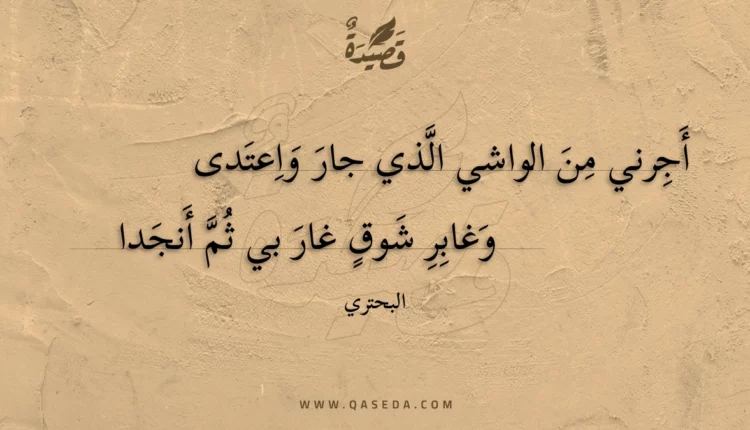 قَصِيدَةٌ
أَجِرني مِنَ الواشي الَّذي جارَ وَاِعتَدى
وَغابِرِ شَوقٍ غارَ بي ثُمَّ أَنجَدا
البحتري
WWW.QASEDA.COM